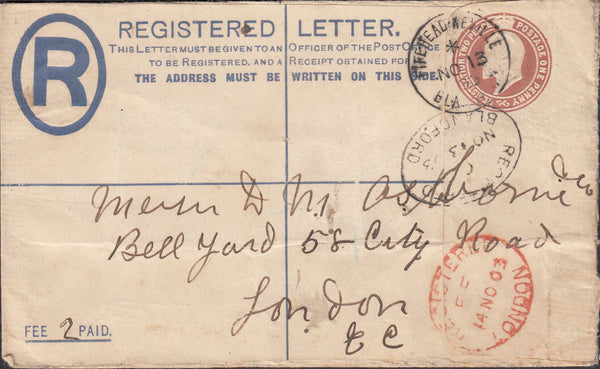 REGISTERED LETTER.
THIS LETTER MUST BE GIVEN TO AN OFFICER OF THE POST OFFICE
TO BE REGISTERED, AND A RECEIPT OBTAINED FOR
THE ADDRESS MUST BE WRITTEN ON THIS SIDE.
R
POSTAGE ONE PENNY
NO 13
BLA
BLANDFORD
NO 13
Messrs D. M. Osborne & Co
Bell Yard 58 City Road
London
E C
REGISTERED LONDON
14 NO 03
FEE 2 PAID.